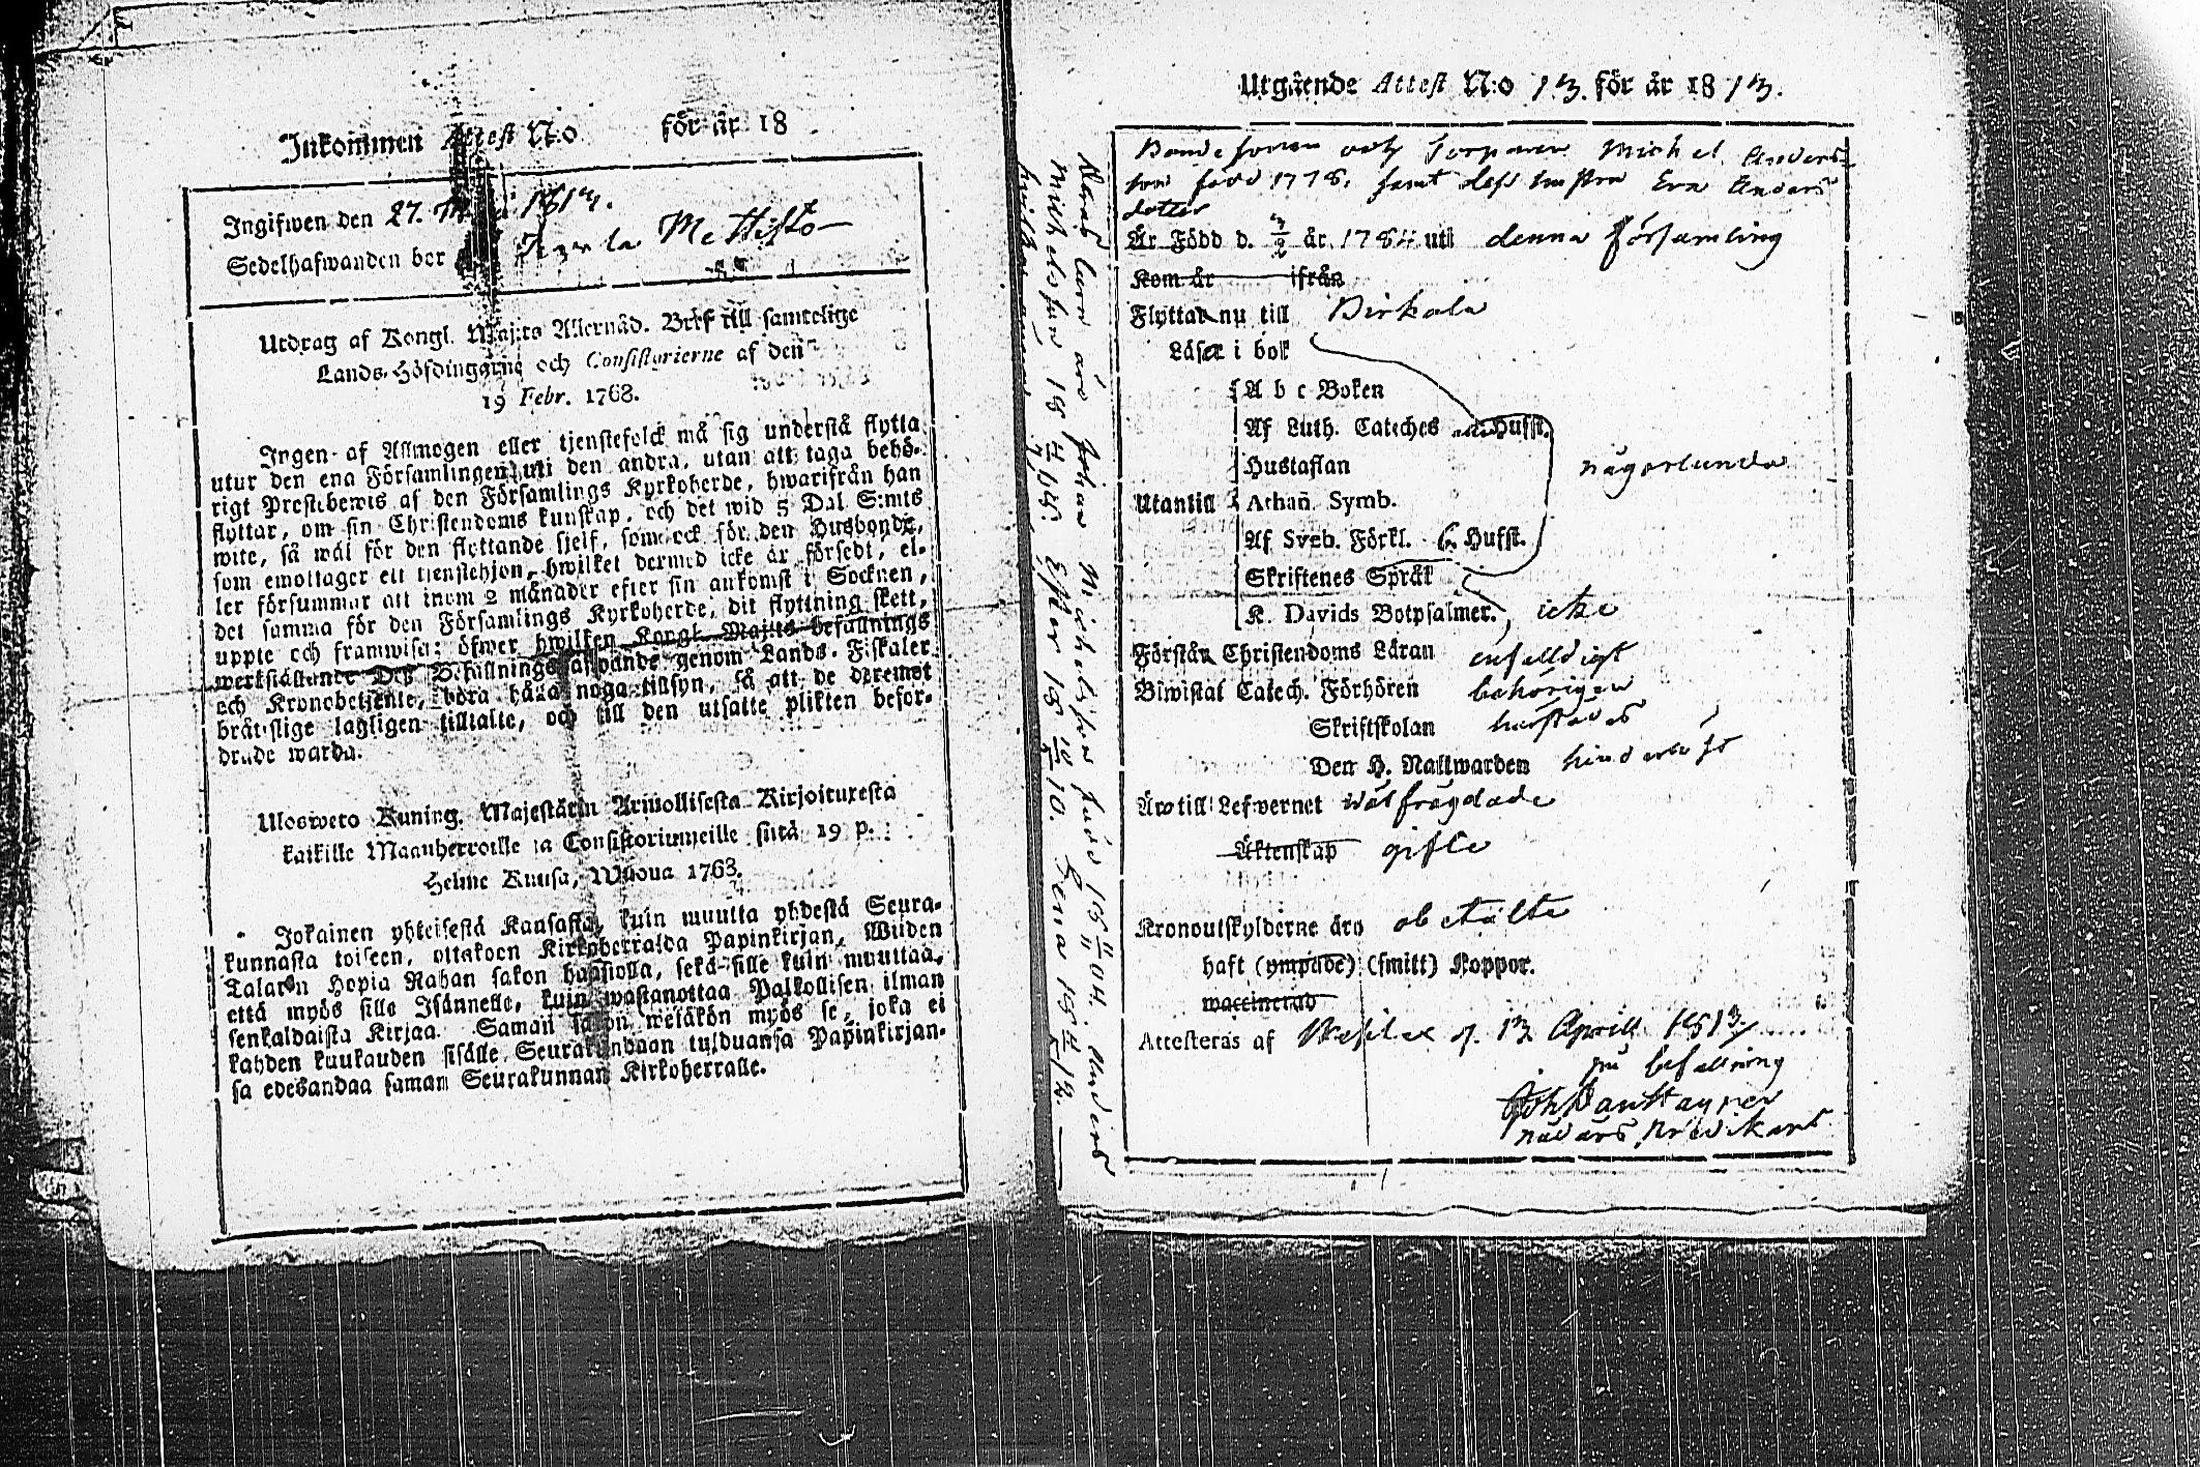 Inkommen Attest N:o för år 18
Ingifwen den 27. 1813.
Sedelhafwanden bor Mettisto
Utdrag af Kongl. Maj:ts Allernåd. Bref till samtelige
Lands-Höfdingarne och Consistorierne af den
19 Febr. 1768.
Ingen af Allmogen eller tjenstefolck må sig understå flytta
utur den ena Församlingen uti den andra, utan att taga behö-
rigt Prestebewis af den Församlings Kyrkoherde, hwarifrån han
flyttar, om sin Christendoms kunskap, och det wid 5 Dal S:mts
wite, så wäl för den flyttande sjelf, som ock för den Husbonde,
som emottager ett tienstehjon, hwilket dermed icke är försedt, el-
ler försummar att inom 2 månader efter sin ankomst i Socknen,
det samma för den Församlings Kyrkoherde, dit flyttning skett,
uppte och framwisa; öfwer hwilken Kongl. Maj:ts befallnings
werkställande Dess Befallningshafwande genom Lands-Fiskaler
och Kronobetjente, böra hålla noga tillsyn, så att de deremot
bråtslige lagligen tilltalte, och till den utsatte plikten befor-
drade warda.
Ulosweto Kuning. Majestätin Armollisesta Kirjoituxesta
kaikille Maanherroille ja Consistoriumeille siitä 19 p.
Helme Kuusa, Wuona 1768.
Jokainen yhteisestä Kansasta, kuin muutta yhdestä Seura-
kunnasta toiseen, ottakoon Kirkoherralda Papinkirjan, Wiiden
Talarin Hopia Rahan sakon haastolla, sekä sille kuin muuttaa,
että myös sille Isännelle, kuin wastanottaa Palkollisen ilman
senkaldaista Kirjaa. Saman sakon wetäkön myös se, joka ei
kahden kuukauden sisälle Seurakundaan tulduansa Papinkirjan-
sa edesandaa saman Seurakunnan Kirkoherralle.
Utgående Attest N:o 13. för år 1813.
Bondesonen och Torparen Michel Anders-
son född 1778, samt dess hustru Eva Anders
dotter
Är Född d. 3/2 år 1784 uti denna Församling
Kom år ifrån
Flyttar nu till Birkala
Läser i bok
A b c Boken
Af Luth. Cateches Husst.
Hustaflan
någorlunda
Utantill Athan. Symb.
Af Sveb. Förkl. Husst.
Skriftenes Språk
K. Davids Botpsalmer. icke
Förstår Christendoms Läran enfalldigt
Biwistat Catech. Förhören behörigen
Skriftskolan härstädes
Den H. Nattwarden hinderlöst
Äro till Lefvernet wälfrägdade
Äktenskap gifte
Kronoutskylderne äro obetalte
haft (ympade) (smitt) Koppor.
waccinerad
Attesteras af Wesilax d. 13 Aprill 1813
på befallning
nådårs Predikant
Deras barn äro Johan Michelsson född 18 11/11 04. Anders
Michelsson 18 4/7 08. Ester 18 10/5 10. Lena 18 4/5 12.